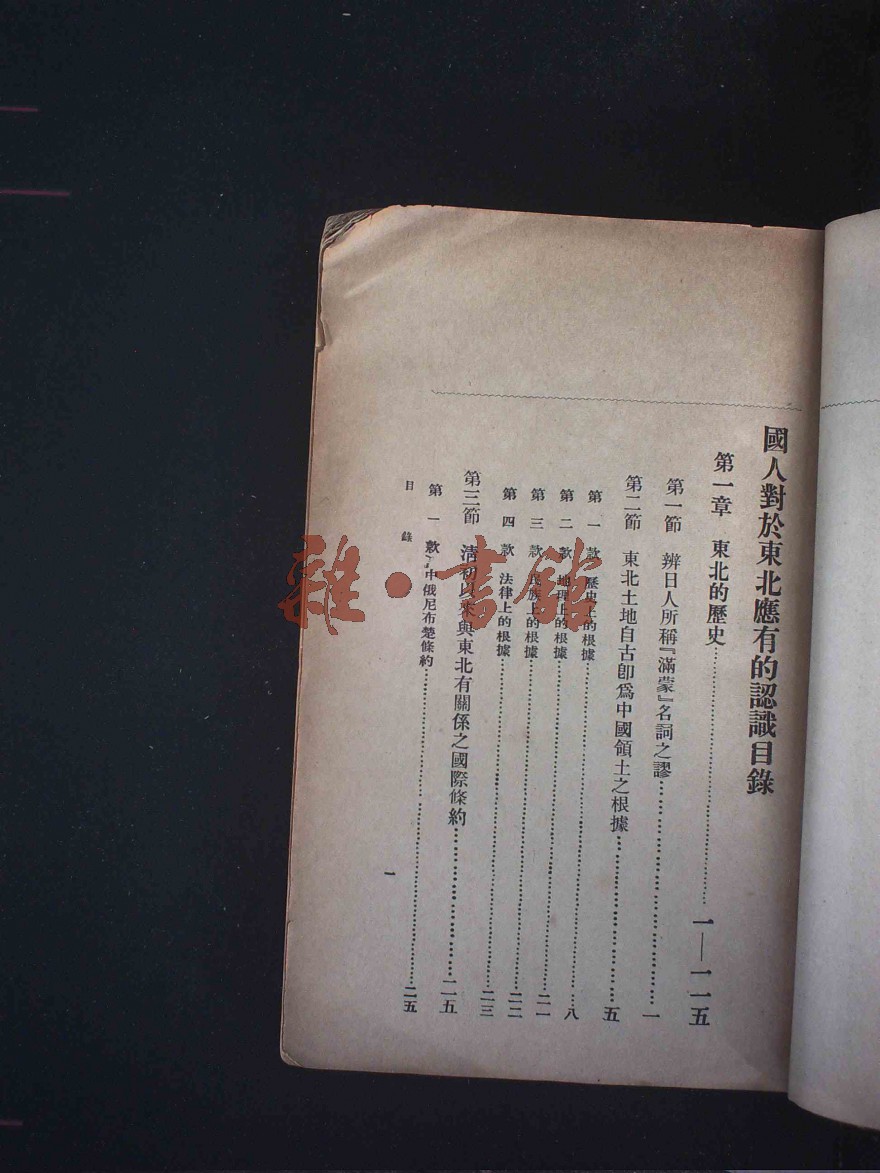 國人對於東北應有的認識目錄
第一章 東北的歷史……一—一一五
第一節 辨日人所稱『滿蒙』名詞之謬……一
第二節 東北土地自古卽爲中國領土之根據……五
第一款 歷史上的根據……八
第二款 地理上的根據……二一
第三款 民族上的根據……二二
第四款 法律上的根據……二三
第三節 淸初以來與東北有關係之國際條約……二五
第一款 中俄尼布楚條約……二五
目錄
一
雜·書館